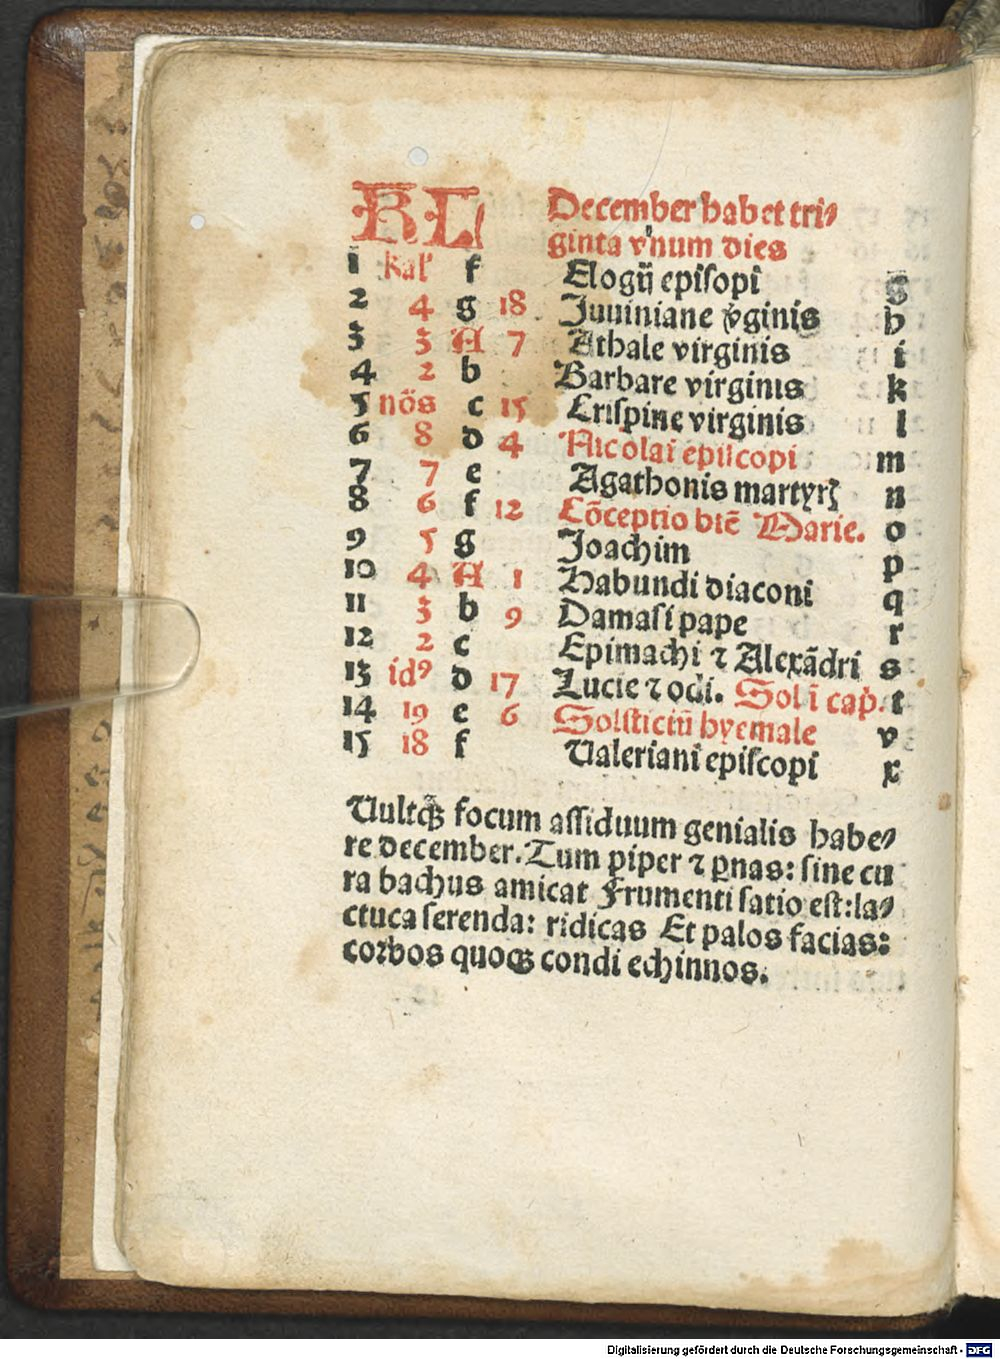 KL December habet tri⸗
ginta vnum dies
1 kal' f Elogij episopi g
2 4 g 18 Juuiniane v̕ginis h
3 3 A 7 Athale virginis i
4 2 b Barbare virginis k
5 nōs c 15 Crispine virginis l
6 8 d 4 Nicolai episcopi m
7 7 e Agathonis martyrꝭ n
8 6 f 12 Cōceptio btē Marie. o
9 5 g Joachim p
10 4 A 1 Habundi diaconi q
11 3 b 9 Damasi pape r
12 2 c Epimachi ⁊ Alexādri s
13 idꝰ d 17 Lucie ⁊ odi. Sol ī cap̕. t
14 19 e 6 Solsticiū hyemale v
15 18 f Valeriani episcopi x
Vultqꝫ focum assiduum genialis habe⸗
re december. Tum piper ⁊ ꝑnas: sine cu
ra bachus amicat Frumenti satio est: la⸗
ctuca serenda: ridicas Et palos facias:
corbos quoqꝫ condi echinnos.
Digitalisierung gefördert durch die Deutsche Forschungsgemeinschaft - DFG